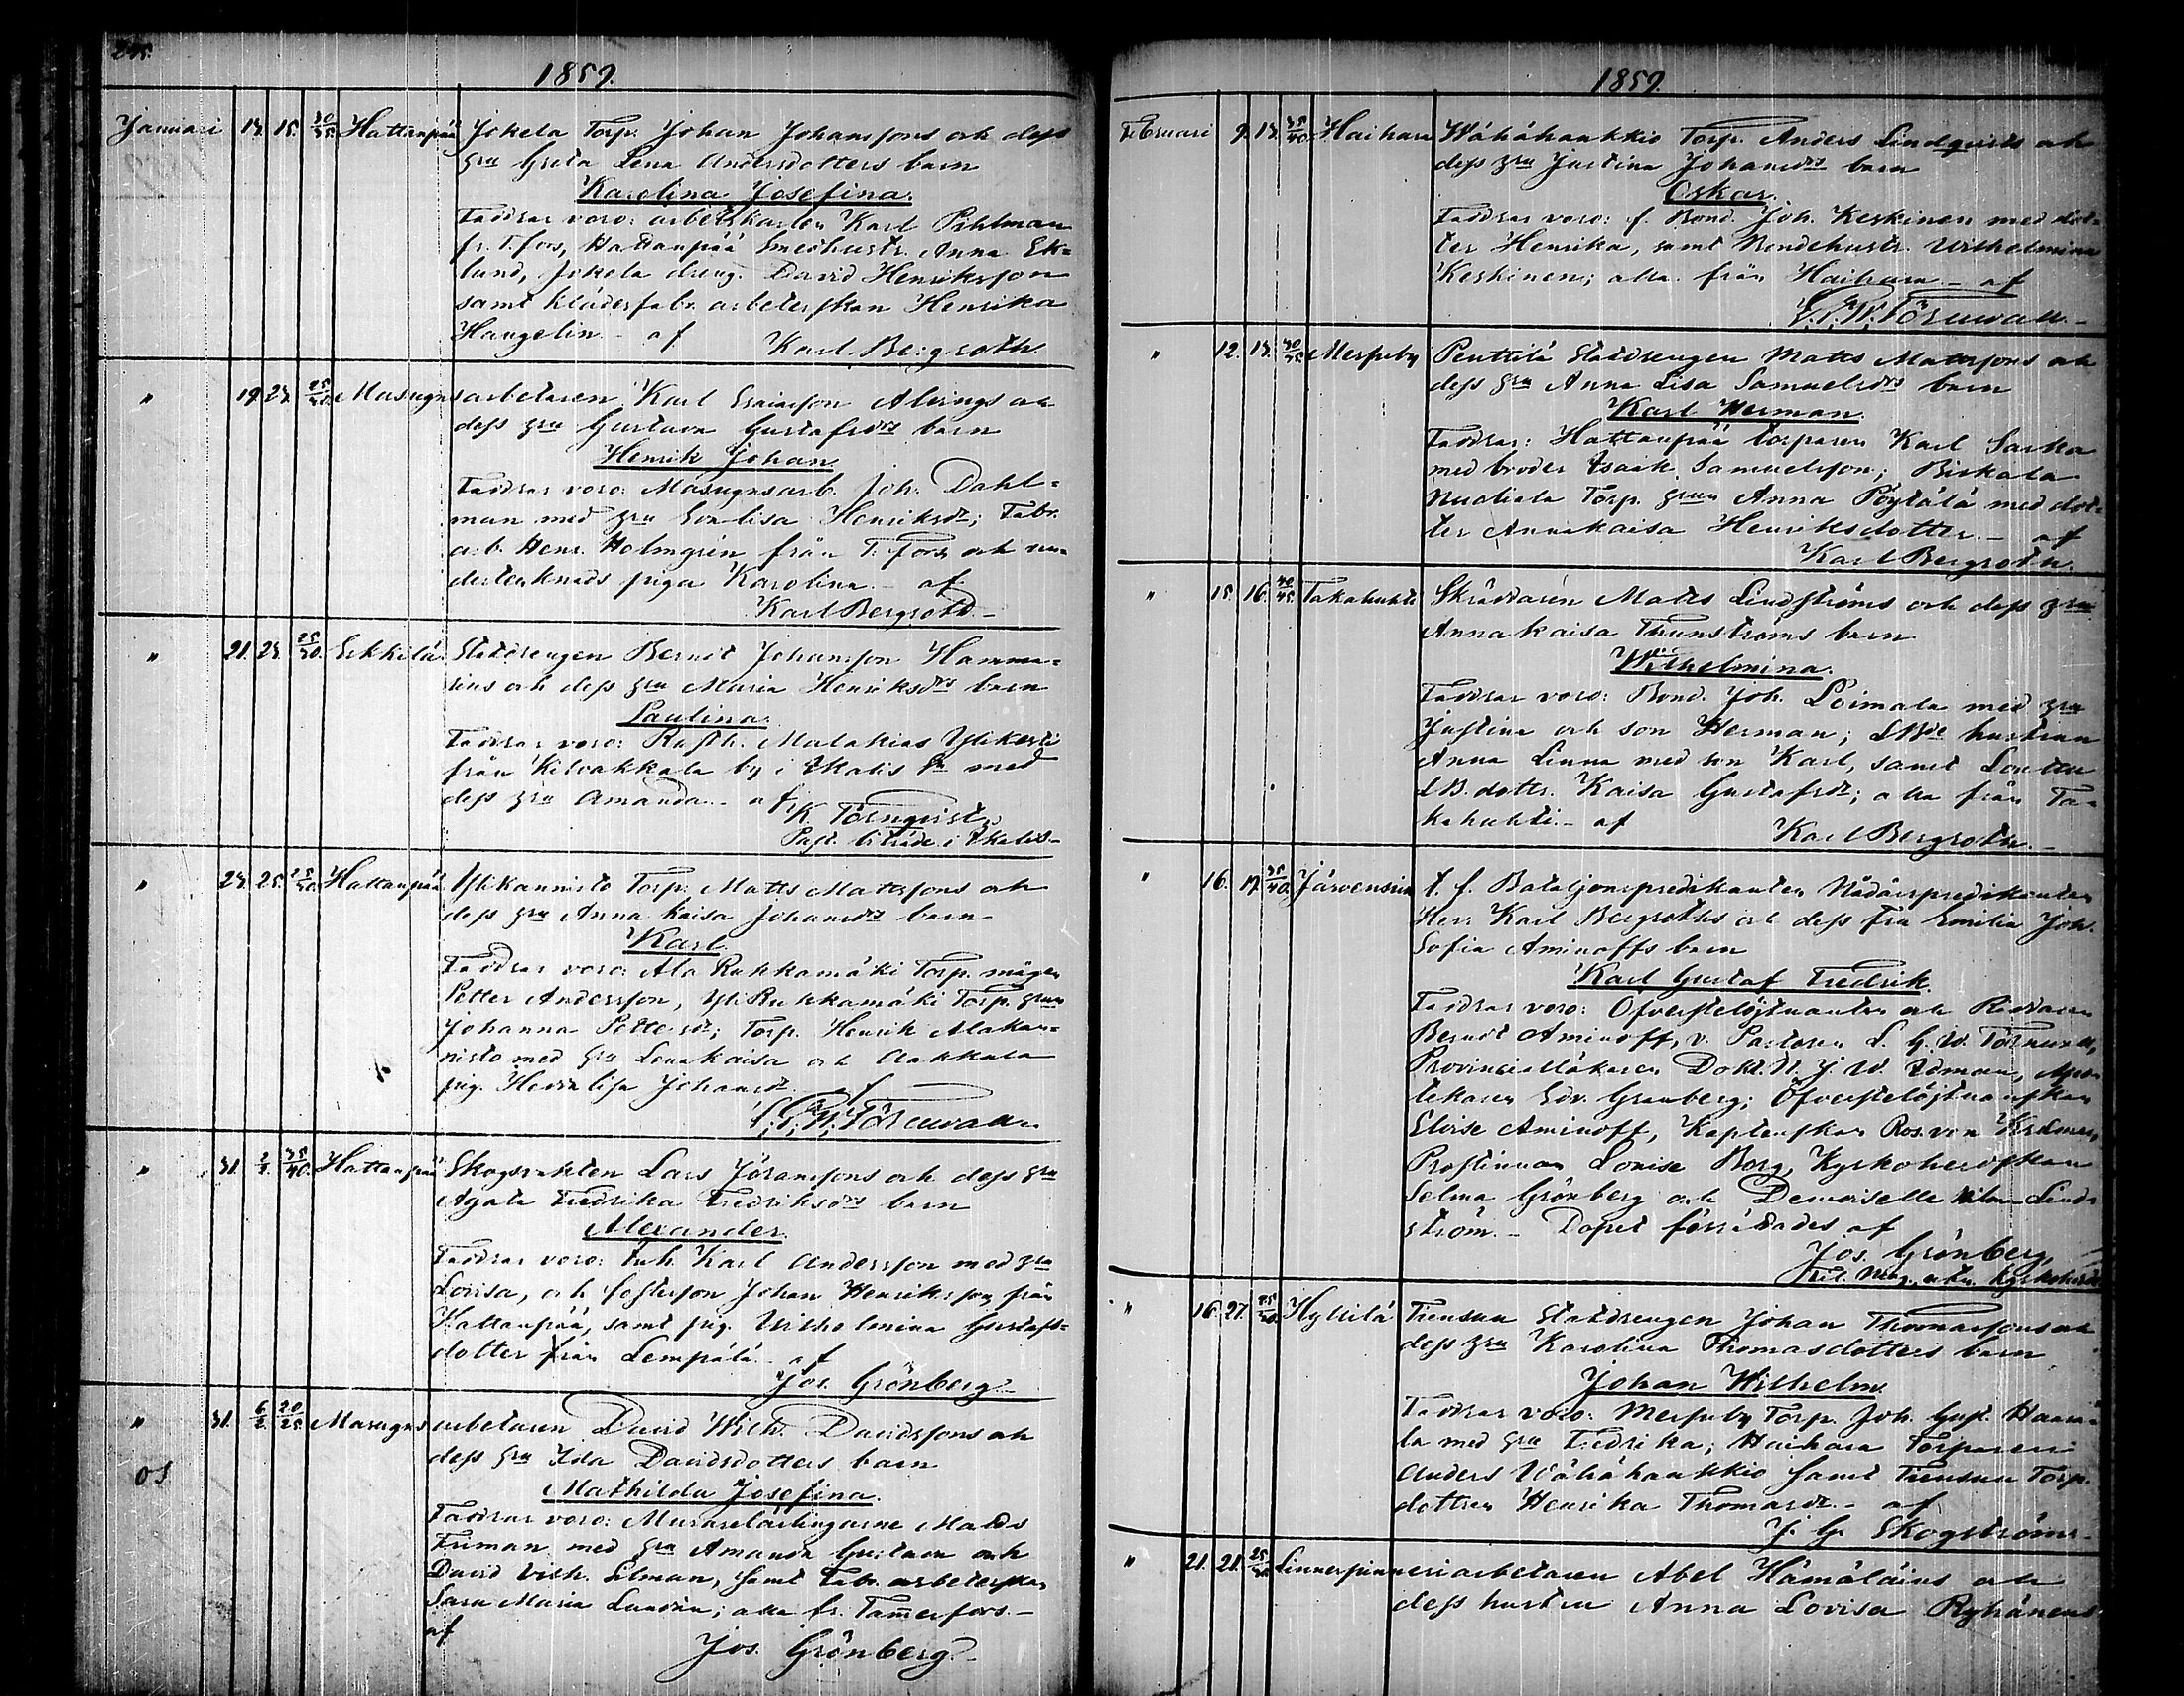 245.
1859.
Januari 14. 15. 30/35. Hattanpää Jokela Torp. Johan Johanssons och dess
hru Greta Lena Andersdotters barn
Karolina Josefina.
Faddrar voro: arbetskarlen Karl Pihlman
fr. T.fors, Hattanpää Smedhustr. Anna Ek-
lund, Jokela dreng. David Henriksson
samt klädesfabr. arbeterskan Henrika
Haugelin - af Karl Bergroth.
" 19. 24. 25/30. Masugnsarbetaren Karl Ersson Alengs och
dess hru Gustava Gustafsdrs barn
Henrik Johan.
Faddrar voro: Masugnsarb. Joh. Dahl-
man med hru Evalisa Henriksdr; Fabr.
arb. Henr. Holmgrén från T. fors och un-
dertecknads piga Karolina - af
Karl Bergroth -
" 21. 24. 25/30. Erkkilä Statdrengen Berndt Johansson Hamma-
rens och dess hru Maria Henriksdrs barn
Paulina.
Faddrar voro: Rusth. Malakias Ylikerti
från Kilvakkala by i Ikalis Sn med
dess hru Amanda - af
K. Törnqvist
Past. biträde i Ikalis -
" 24. 25. 25/30. Hattanpää Ylikannisto Torp. Matts Mattssons och
dess hru Anna Kaisa Johansdrs barn -
Karl.
Faddrar voro: Ala Ruhkamäki Torp. mågen
Petter Andersson, Yli Ruhkamäki Torp. hrun
Johanna Pettersdr; Torp. Henrik Alakan-
nisto med hru Lenakaisa och Aakkula
pig. Hedvalisa Johansdr. af
L. G. W. Törnwall.
" 31. 2/2. 35/40. Hattanpää Skogsvakten Lars Göranssons och dess hru
Agata Fredrika Fredriksdrs barn
Alexander.
Faddrar voro: Inh. Karl Andersson med hru
Lovisa, och fosterson Johan Henriksson från
Hattanpää, samt pig. Wilhelmina Gustafs-
dotter från Lempälä - af
Jos. Grönberg -
" 31. 6/2. 20/25. Masugns arbetaren David Wilh. Davidssons och
dess hru Ida Davidsdotters barn
oS
Mathilda Josefina.
Faddrar voro: Murarelärlingarne Matts
Friman med hru Amanda Gustava och
David Vilh. Selman, samt Fabr. arbeterskan
Sara Maria Lundén; alla fr. Tam̄erfors. -
af
Jos. Grönberg -
1859.
Februari 9. 14. 35/40. Haihara Wähähaukkio Torp. Anders Lindqvists och
dess hru Justina Johansdrs barn
Oskar.
Faddrar voro: f. Bond. Joh. Keskinen med dot-
ter Henrika, samt Bondehustr. Wilhelmina
Keskinen; alla från Haihara - af
L. G. W. Törnwall. -
" 12. 14. 30/35. Messuby Penttilä Statdrengen Matts Mattssons och
dess hru Anna Lisa Samuelsdrs barn
Karl Herman.
Faddrar: Hattanpää torparen Karl Sarka
med broder Isaak Samuelsson; Birkala
Nuoliala Torp. hrun Anna Pöytälä med dot-
ter Annakaisa Henriksdotter. - af
Karl Bergroth.
" 15. 16. 40/45. Takahuhti Skräddarén Matts Lindströms och dess hru
Annakaisa Thunströms barn
Wilhelmina.
Faddrar voro: Bond. Joh. Loimala med hru
Justina och son Herman; LBde hustrun
Anna Linna med son Karl, samt Loutu
LB. dottr. Kaisa Gustafsdr; alla från Ta-
kahuhti. - af
Karl Bergroth. -
" 16. 17. 35/40. Järvensivu t. f. Bataljonspredikanten Nådårspredikanten
Herr Karl Bergroths och dess Fru Emilia Joh.
Sofia Aminoffs barn
Karl Gustaf Fredrik.
Faddrar voro: Öfverstelöjtnanten och Riddaren
Berndt Aminoff, v. Pastoren L. G. W. Törnwall,
Provincialläkaren Dokt. N. J. W. Idman, Apo-
tekaren Edv. Granberg; Öfverstelöjtnanskan
Eloise Aminoff, Kaptenskan Ros. von Kræmer,
Prostinnan Louise Borg, Kyrkoherdskan
Selma Grönberg och Demoiselle Lind-
ström. - Dopet förrättades af
Jos. Grönberg
Kyrkoherde
" 16. 27. 25/30. Hyllilä Tiensuu Statdrengen Johan Thomassons och
dess hru Karolina Thomasdotters barn
Johan Wilhelm.
Faddrar voro: Messuby Torp. Joh. Gust. Haara-
la med hru Fredrika; Haihara Torparen
Anders Wähähaukkio samt Tiensuu Torp.
dottren Henrika Thomasdr. - af
J. G. Skogström -
" 21. 21. 25/30. Linnespinneriarbetaren Abel Hämäläins och
dess hustru Anna Lovisa Ryhänens